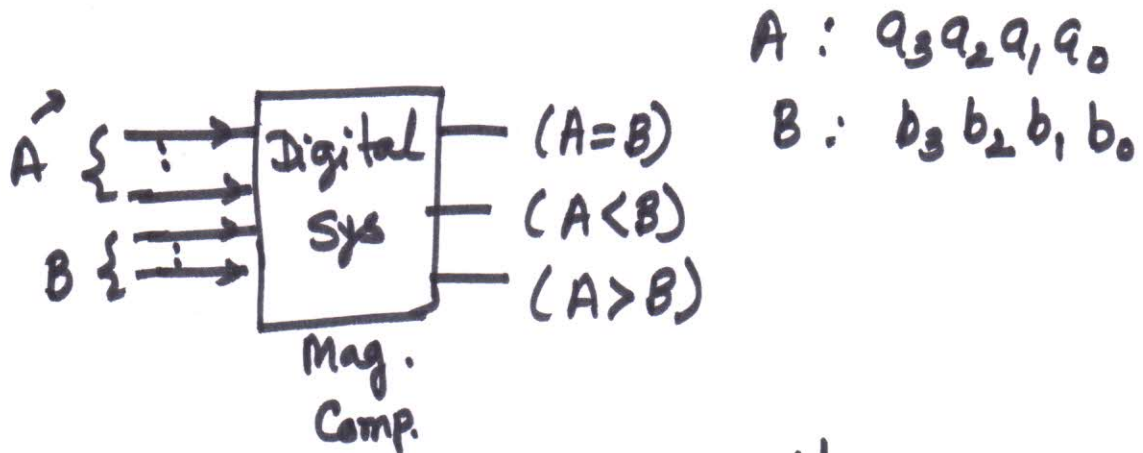 A : a₃ a₂ a₁ a₀
B : b₃ b₂ b₁ b₀
A {
B {
Digital
Sys
(A=B)
(A<B)
(A>B)
Mag.
Comp.